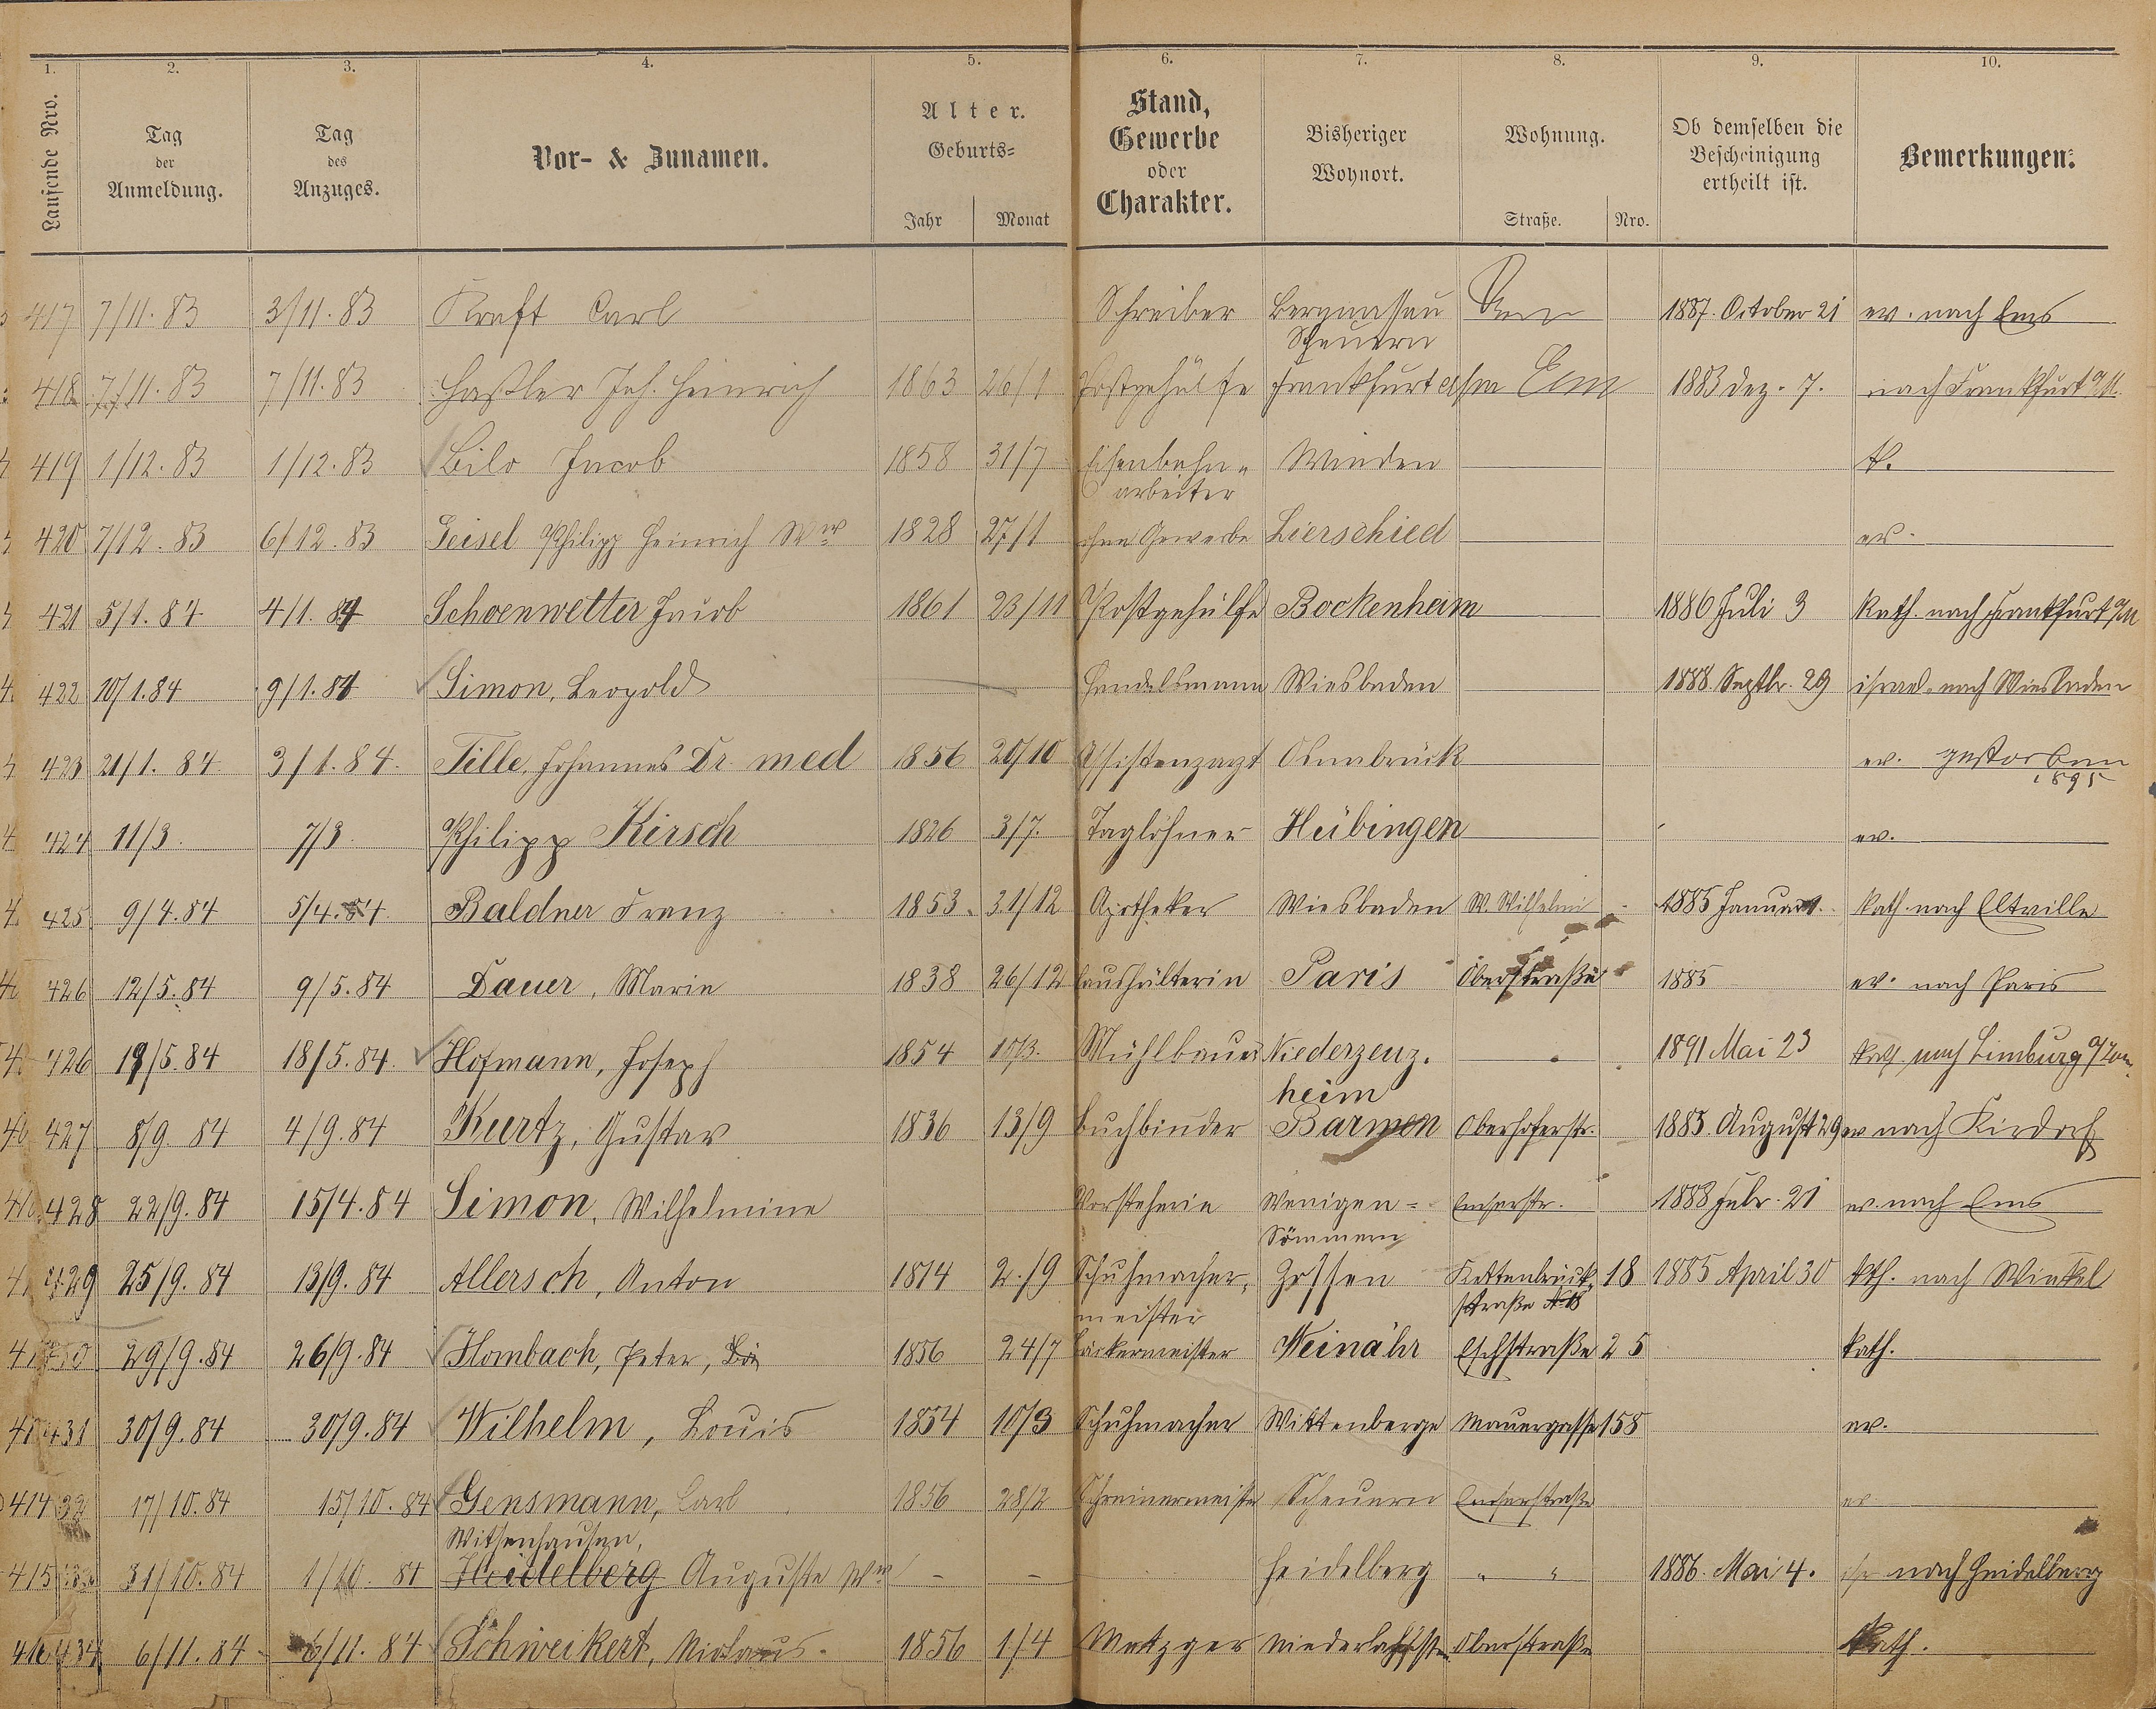 1. 2. 3. 4. 5. 6. 7. 8. 9. 10.
Laufende Nro.
Tag der Anmeldung.
Tag des Anzuges.
Vor- & Zunamen.
Alter.
Geburts=
Jahr Monat
Stand, Gewerbe oder Charakter.
Bisheriger Wohnort.
Wohnung.
Straße. Nro.
Ob demselben die Bescheinigung ertheilt ist.
Bemerkungen.
417 7/11. 83 3/11. 83 Kraft Carl Schreiber Bergnassau 1887. October 21 ev. nach Ems
Scheuern
418 7/11. 83 7/11. 83 Haßler Joh. Heinrich 1863 26/1 Postgehülfe Frankfurt a/m 1883 Dez. 7. nach Frankfurt a/M.
419 1/12. 83 1/12. 83 Bilo Jacob 1858 31/7 Eisenbahn= Winden k.
arbeiter
420 7/12. 83 6/12. 83 Geisel Philipp Heinrich Wwr 1828 27/1 ohne Gewerbe Lierschied ev.
421 5/1. 84 4/1. 84 Schoenwetter Jacob 1861 23/11 Postgehülfe Bockenheim 1886 Juli 3 Kath. nach Frankfurt a/M
422 10/1. 84 9/1. 84 Simon, Leopold Handelsmann Wiesbaden 1888. Septbr. 29 israel. nach Wiesbaden
423 21/1. 84 3/1. 84. Tille, Johannes Dr. med 1856 20/10 Assistenzarzt Osnabrück ev. gestorben
1895
424 11/3. 7/3. Philipp Kirsch 1826 3/7. Taglöhner Hübingen ev.
425 9/4. 84 5/4. 84 Baldner Franz 1853. 31/12 Apotheker Wiesbaden W. Wilhelmi 1885 Januar 1. kath. nach Eltville
426 12/5. 84 9/5. 84 Dauer, Marie 1838 26/12 Haushälterin Paris Oberstraße 1885 ev. nach Paris
426 19/5. 84 18/5. 84. Hofmann, Joseph 1854 10/3. Mühlbauer Niederzeuz. 1891 Mai 23 kath. nach Limburg a/Lan.
heim
427 8/9. 84 4/9. 84 Kurtz, Gustav 1836 13/9 Buchbinder Barmen Oberhoferstr. 1885. August 29 ev nach Kirdorf
428 22/9. 84 15/4. 84 Simon, Wilhelmine Vorsteherin Wenigen= Emserstr. 1888 Febr. 21 ev. nach Ems
Sömmern
429 25/9. 84 13/9. 84 Allersch, Anton 1814 2./9 Schuhmacher= Zossen Kettenbrück= 18 1885 April 30 kth. nach Winkel
meister straße No 18
430 29/9. 84 26/9. 84 Hombach, Peter, Bä 1856 24/7 Bäckermeister Weinähr Eschstraße 25 kath.
431 30/9. 84 30/9. 84 Wilhelm, Louis 1854 10/3 Schuhmacher Wittenberge Mauergasse 158 ev.
414 32 17/10. 84 15/10. 84 Gensmann, Carl 1856 28/2 Schreinermeister Scheuern Emserstraße ev.
Witzenhausen,
415 31/10. 84 1/10. 84 Heidelberg Auguste Ww - - Heidelberg " " 1886. Mai 4. isr nach Heidelberg
416 434 6/11. 84 6/11. 84 Schweikert, Nicolaus. 1856 1/4 Metzger Niederlahnstein Oberstraße Kath.